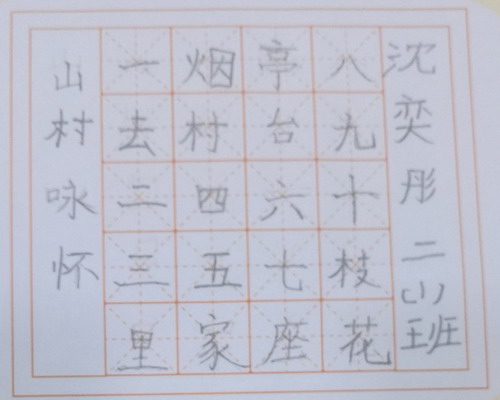 山村咏怀
一去二三里
烟村四五家
亭台六七座
八九十枝花
沈奕彤 二(1)班